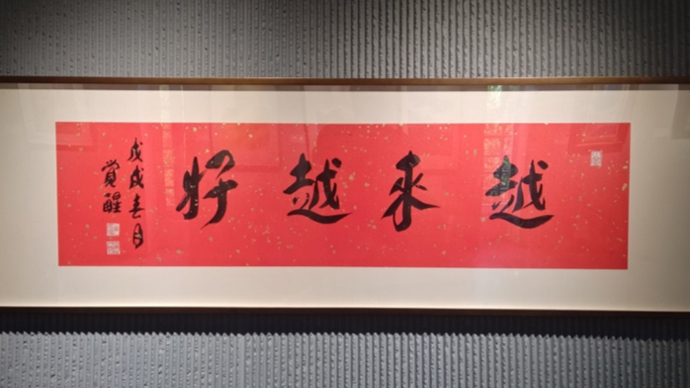 越来越好
戊戌春月
觉醒